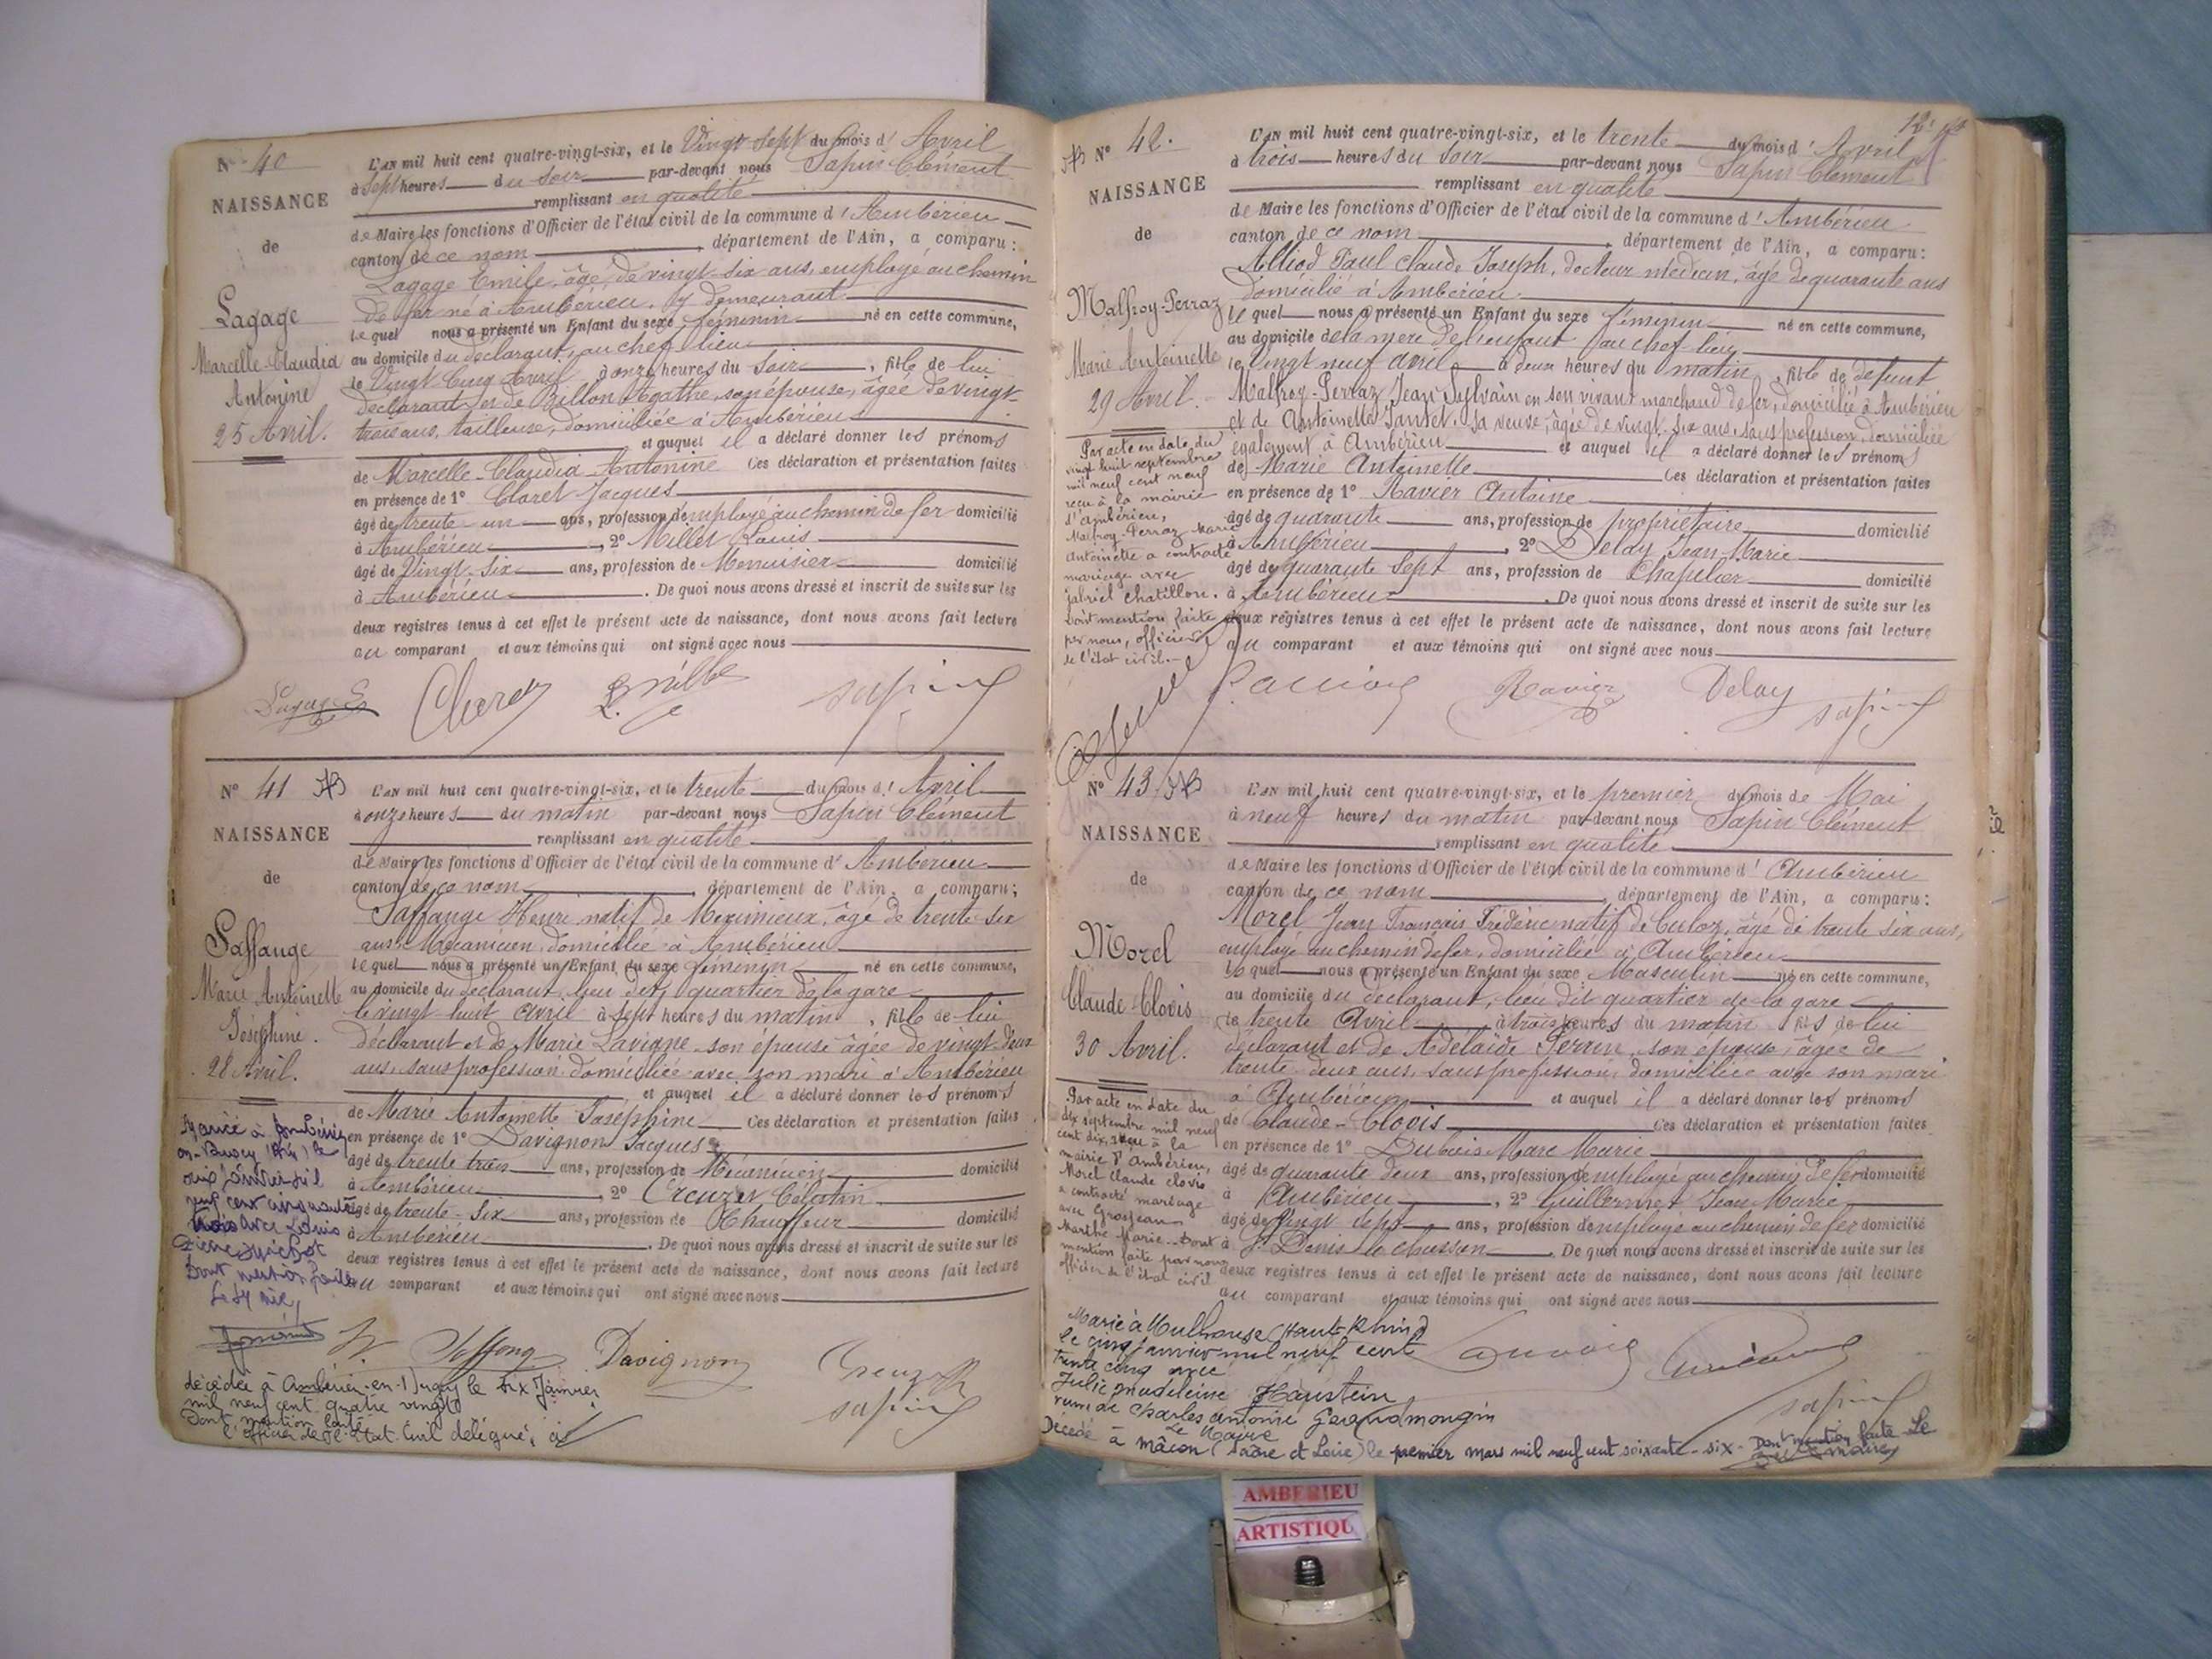 N° 40
NAISSANCE
de
Lagage
Marcelle-Claudia
Antonine
25 Avril.
L'AN mil huit cent quatre-vingt-six, et le Vingt Sept du mois d' Avril
à sept heures du Soir par-devant nous Sapin Clément
remplissant en qualité
de Maire les fonctions d'Officier de l'état civil de la commune d' Ambérieu
canton de ce nom, département de l'Ain, a comparu:
Lagage Emile, âgé de vingt-six ans, employé au chemin
de fer né à Ambérieu, y demeurant
lequel nous a présenté un Enfant du sexe féminin né en cette commune,
au domicile du déclarant, au chef lieu
le Vingt Cinq Avril à onze heures du Soir, fille de lui
déclarant et de Billon Agathe, son épouse, âgée de vingt
trois ans, tailleuse, domiciliée à Ambérieu
et auquel il a déclaré donner les prénoms
de Marcelle-Claudia Antonine Ces déclaration et présentation faites
en présence de 1° Claret Jacques
âgé de trente-un ans, profession d'employé au chemin de fer domicilié
à Ambérieu, 2° Millet Louis
âgé de Vingt Six ans, profession de Menuisier domicilié
à Ambérieu. De quoi nous avons dressé et inscrit de suite sur les
deux registres tenus à cet effet le présent acte de naissance, dont nous avons fait lecture
au comparant et aux témoins qui ont signé avec nous
sapin
N° 41
NAISSANCE
de
Saffange
Marie Antoinette
Joséphine.
28 Avril.
L'AN mil huit cent quatre-vingt-six, et le trente du mois d' Avril
à onze heures du matin par-devant nous Sapin Clément
remplissant en qualité
de Maire les fonctions d'Officier de l'état civil de la commune d' Ambérieu
canton de ce nom, département de l'Ain, a comparu:
Saffange Henri natif de Meximieux, âgé de trente six
ans, Mécanicien, domicilié à Ambérieu
lequel nous a présenté un Enfant du sexe féminin né en cette commune,
au domicile du déclarant, lieu dit quartier de la gare
le vingt-huit avril à sept heures du matin, fille de lui
déclarant et de Marie Lavigne son épouse âgée de vingt-deux
ans, sans profession domiciliée avec son mari à Ambérieu
et auquel il a déclaré donner les prénoms
de Marie Antoinette Joséphine Ces déclaration et présentation faites
en présence de 1° Davignon Jacques
âgé de trente trois ans, profession de Mécanicien domicilié
à Ambérieu, 2° Creuzet Célestin
âgé de trente-six ans, profession de Chauffeur domicilié
à Ambérieu. De quoi nous avons dressé et inscrit de suite sur les
deux registres tenus à cet effet le présent acte de naissance, dont nous avons fait lecture
au comparant et aux témoins qui ont signé avec nous
Mariée à Ambérieu
en-Bugey (Ain) le
onze janvier mil
neuf cent cinquante
trois avec Louis
Dont mention faite
Davignon
sapin
décédée à Ambérieu-en-Bugey le six Janvier
mil neuf cent quatre vingt
Dont mention faite
l'officier de l'Etat Civil délégué,
N° 42.
NAISSANCE
de
Malfroy-Perraz
Marie Antoinette
29 Avril.
L'AN mil huit cent quatre-vingt-six, et le trente du mois d' Avril
à trois heures du Soir par-devant nous Sapin Clément
remplissant en qualité
de Maire les fonctions d'Officier de l'état civil de la commune d' Ambérieu
canton de ce nom, département de l'Ain, a comparu:
Alliod Paul Claude Joseph, docteur médecin, âgé de quarante ans
domicilié à Ambérieu
lequel nous a présenté un Enfant du sexe féminin né en cette commune,
au domicile de la mère de l'enfant au chef-lieu
le Vingt neuf avril à deux heures du matin, fille de défunt
Malfroy-Perraz Jean Sylvain en son vivant marchand de fer, domicilié à Ambérieu
et de Antoinette Jantet, sa veuve, âgée de vingt-six ans, sans profession, domiciliée
également à Ambérieu et auquel il a déclaré donner les prénoms
de Marie Antoinette Ces déclaration et présentation faites
en présence de 1° Ravier Antoine
âgé de quarante ans, profession de propriétaire domicilié
à Ambérieu, 2° Delay Jean Marie
âgé de quarante sept ans, profession de Chapelier domicilié
à Ambérieu. De quoi nous avons dressé et inscrit de suite sur les
deux registres tenus à cet effet le présent acte de naissance, dont nous avons fait lecture
au comparant et aux témoins qui ont signé avec nous
Par acte en date du
vingt huit septembre
mil neuf cent neuf
reçu à la mairie
d'Ambérieu,
Malfroy-Perraz Marie
Antoinette a contracté
mariage avec
Gabriel Chatillon.
Dont mention faite
par nous, officier
de l'état civil.
Ravier
Delay
sapin
N° 43
NAISSANCE
de
Morel
Claude-Clovis
30 Avril.
L'AN mil huit cent quatre-vingt-six, et le premier du mois de Mai
à neuf heures du matin par-devant nous Sapin Clément
remplissant en qualité
de Maire les fonctions d'Officier de l'état civil de la commune d' Ambérieu
canton de ce nom, département de l'Ain, a comparu:
Morel Jean François Frédéric natif de Culoz, âgé de trente six ans,
employé au chemin de fer, domicilié à Ambérieu
lequel nous a présenté un Enfant du sexe Masculin né en cette commune,
au domicile du déclarant, lieu dit quartier de la gare
le trente Avril à trois heures du matin fils de lui
déclarant et de Adelaïde Perrin son épouse, âgée de
trente deux ans, sans profession, domiciliée avec son mari
à Ambérieu et auquel il a déclaré donner les prénoms
de Claude-Clovis Ces déclaration et présentation faites
en présence de 1° Dubois Marc Marie
âgé de quarante deux ans, profession d'employé au chemin de fer domicilié
à Ambérieu, 2° Guillermet Jean Marie
âgé de Vingt sept ans, profession d'employé au chemin de fer domicilié
à St Denis le Chosson. De quoi nous avons dressé et inscrit de suite sur les
deux registres tenus à cet effet le présent acte de naissance, dont nous avons fait lecture
au comparant et aux témoins qui ont signé avec nous
Par acte en date du
dix septembre mil neuf
cent dix, reçu à la
mairie d'Ambérieu,
Morel Claude Clovis
a contracté mariage
avec Grosjean
Marthe Marie. Dont
mention faite par nous
officier de l'état civil
Marié à Mulhouse (Haut-Rhin)
le cinq janvier mil neuf cent
trente cinq avec
Julie Madeleine Haustein
veuve de Charles Antoine Gérard mongin
Le Maire
sapin
Décédé à Mâcon (Saône et Loire) le premier mars mil neuf cent soixante-six. Dont mention faite Le
AMBERIEU
ARTISTIQU